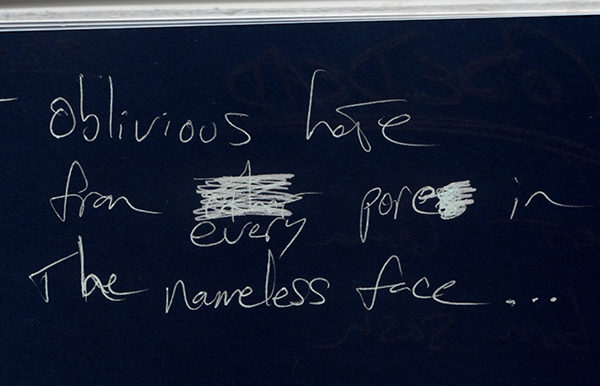 Oblivious hate
from every pore in
The nameless face ...